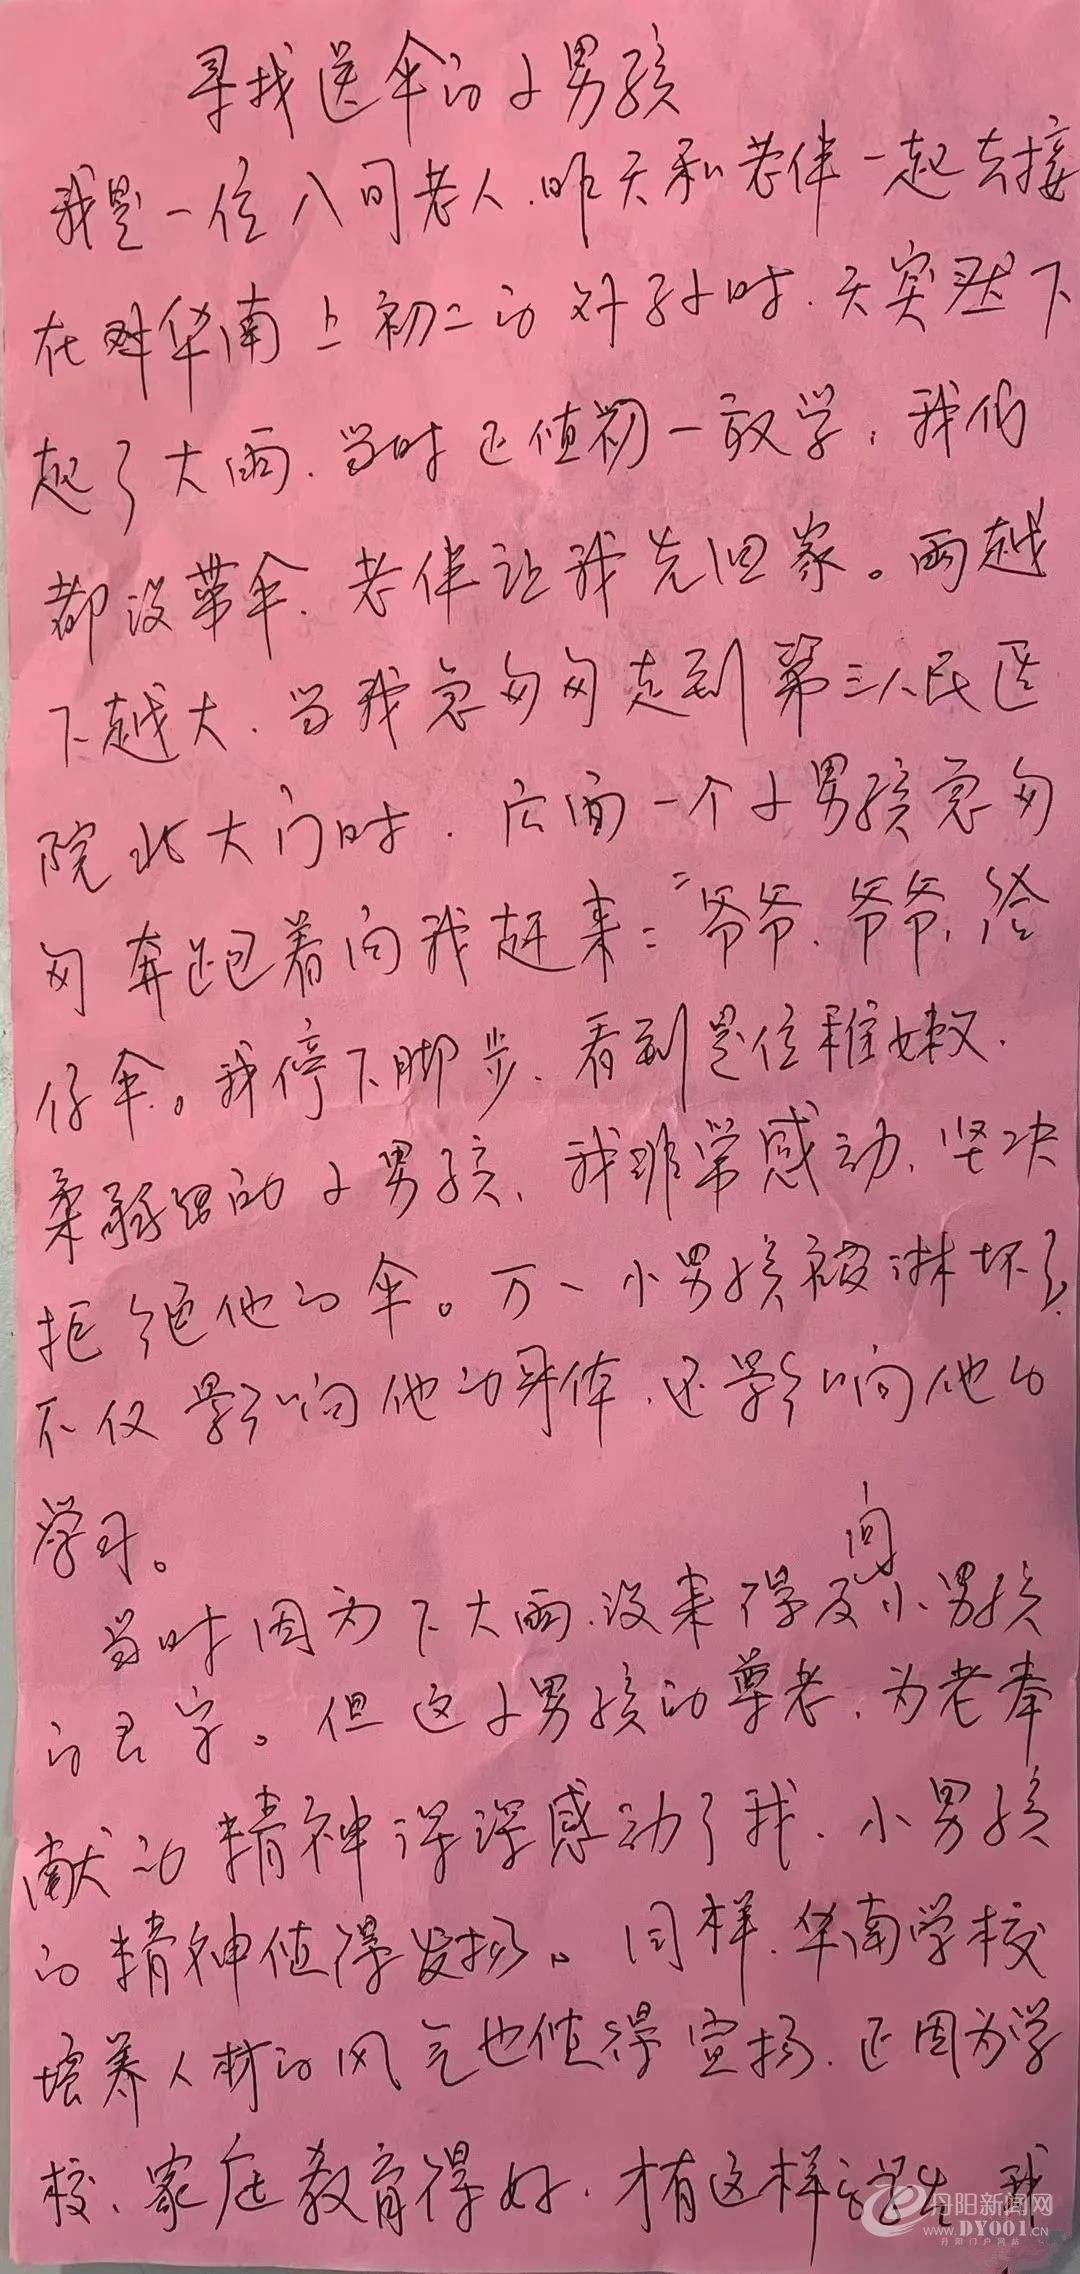 寻找送伞的小男孩
我是一位八旬老人，昨天和老伴一起去接
在华南上初二的外孙时，天突然下
起了大雨，当时正值初一放学，我们
都没带伞，老伴让我先回家。雨越
下越大，当我急匆匆走到第三人民医
院北大门时，后面一个小男孩急匆
匆奔跑着向我赶来："爷爷，爷爷，给
你伞。我停下脚步，看到是位稚嫩，
柔弱的小男孩，我非常感动，坚决
拒绝他的伞。万一小男孩被淋坏了，
不仅影响他的身体，还影响他的
学习。
当时因为下大雨，没来得及问小男孩
的名字。但这小男孩的尊老，为老奉
献的精神深深感动了我，小男孩
的精神值得发扬。同样，华南学校
培养人材的风气也值得宣扬，正因为学
校、家庭教育得好，才有这样 我
丹阳新闻网
WWW.DY001.CN
丹阳门户网站